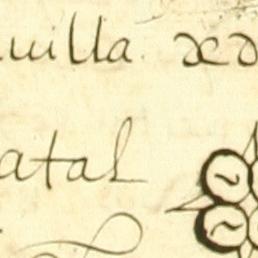 uilla. de
atal